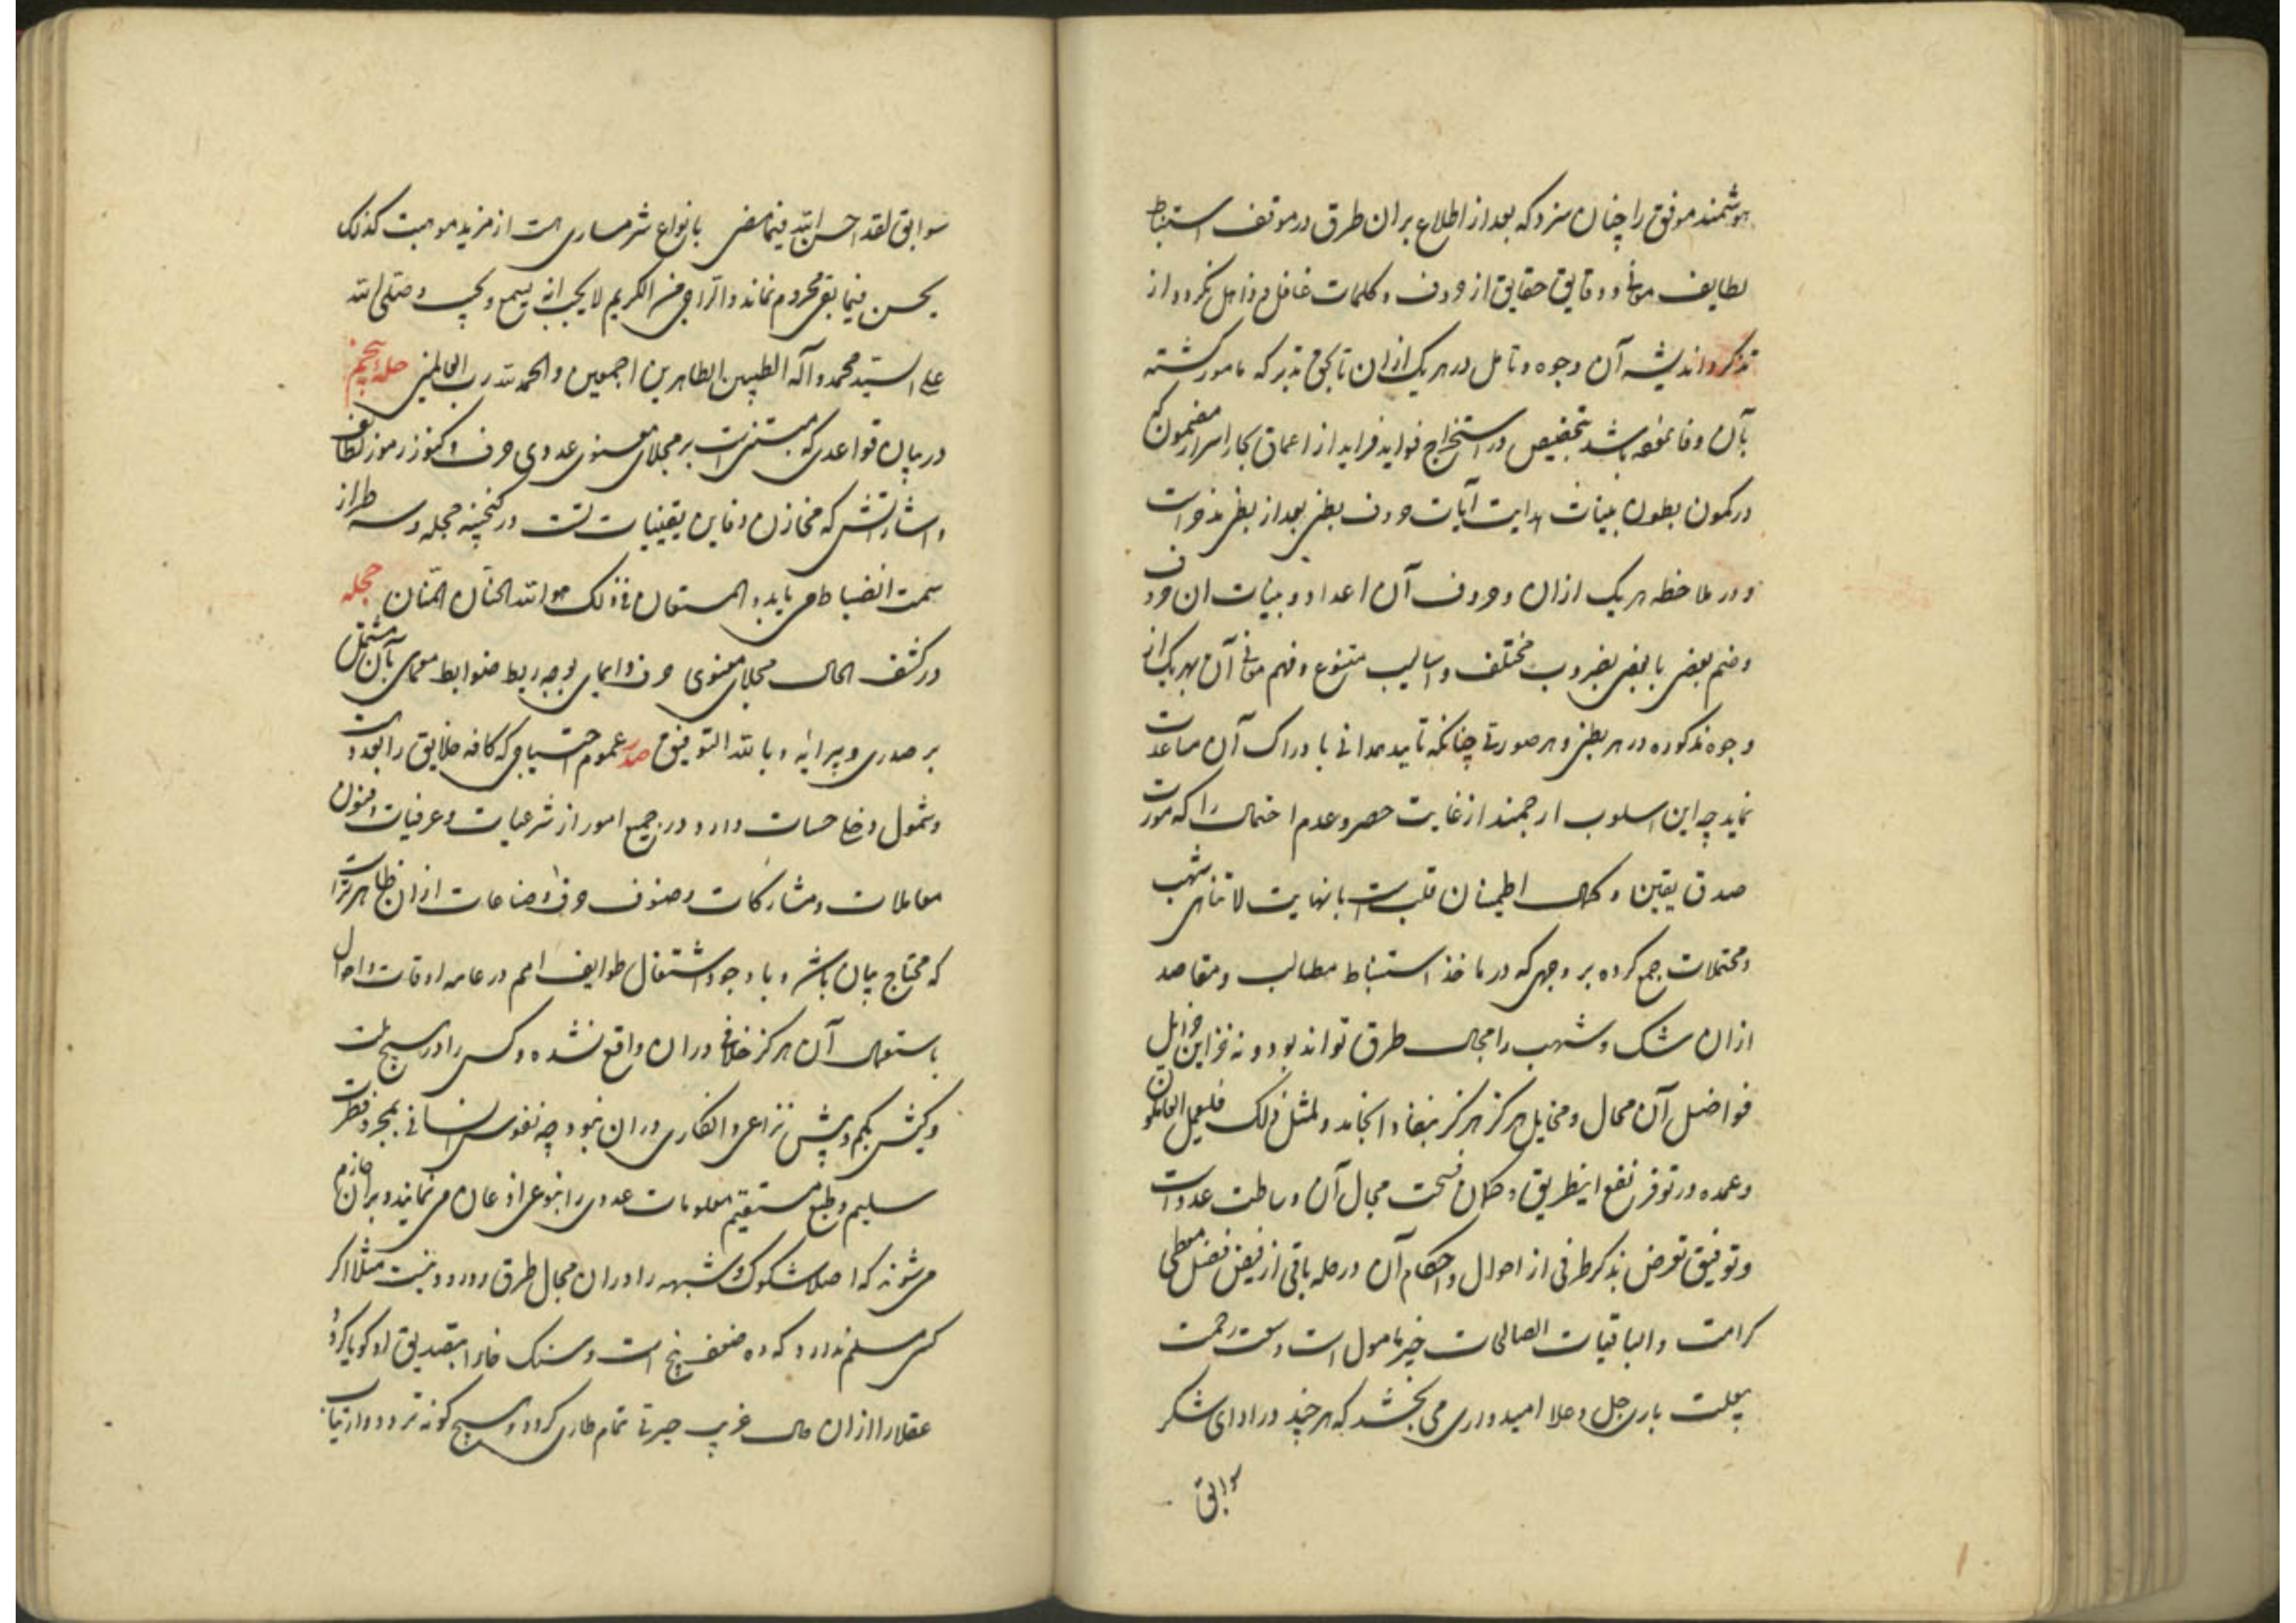 هوشمند موفق را چنان سزد که بعد از اطلاع بران طرق در موقف استنباط
لطایف معانی و دقایق حقایق از حروف و کلمات غافل و ذاهل نکردد از
تذکر و اندیشه آن وجوه و تامل در هر یک ازان تا بحق تدبر که مامور کشته
بآن وفا نموده باشد بتخصیص در استخراج فواید فراید از اعماق بحار اسرار مضمون که
در کمون بطون بینات هدایت آیات حروف بطنی بعد از بطنی مذخر است
و در ملاحظه هر یک ازان و حروف آن اعداد و بینات ان حروف
وضم بعضی با بعضی بضروب مختلف و اسالیب متنوع و فهم معانی آن بهر یک از
وجوه مذکوره در هر بطنی و هر صورتی چنانکه تایید صمدانی با دراک آن مساعدت
نماید چه این اسلوب ارجمند از غایت حصر و عدم احتمال را که مورث
صدق یقین و کمال اطمینان قلب است با نهایت لا تناهی شهب
ومحتملات جمع کرده بر وجهی که در ماخذ استنباط مطالب ومقاصد
ازان شک و شبهه را مجال طرق تواند بود و نه خزاین جزایل
فواضل آن محال ومخایل هرکز هرکز بنفاد انجامد ولمثل ذلک فلیعمل العاملون
وعمده در توفر نفع اینطریق و کمال فسحت مجال آن وساطت عدد است
وتوفیق تعرض بذکر طرفی از احوال و احکام آن در حله باقی از فیض فضل معطی
کرامت والباقیات الصالحات خیر مامول است وسعت رحمت
بیعلت باری جل وعلا امیدواری می بخشد که هر چند در ادای شکر
سوابق
سوابق لقد احسن الله فیما مضی بانواع شرمساری هست از مزید موهبت کذلک
یحسن فیما بقی محروم نماند والراجی من الکریم لا یخیب انه یسمع ویجیب وصلی الله
علی السید محمد وآله الطیبین الطاهرین اجمعین والحمد لله رب العالمین حله پنجم
در بیان قواعدی که مبتنی است بر مجلای معنوی عددی حرف و کنوز رموز لطایف
واشاراتش که مخازن دفاین یقینیات است در کنجینه حجله وسه طراز
سمت انضباط می یابد والمستعان فی ذلک هو الله الحنان المنان حجله
در کشف الحال مجلای معنوی حرف و ایمای بوجه ربط ضوابط معمای بآن مشتمل
بر صدری و پیرایه و بالله التوفیق صدر عموم احتیاجی که کافه خلایق را بعدد است
وشمول دخلی که حساب دارد در جمیع امور از شرعیات وعرفیات و فنون
معاملات ومشارکات وصنوف حرف وصناعات ازان ظاهرتر است
که محتاج بیان باشد و با وجود اشتغال طوایف امم در عامه اوقات و احوال
باستعمال آن هرکز خلافی دران واقع نشده وکس را در هیچ ملت
وکیش بکم وبیش نزاعی و انکاری دران نبود چه نفوس انسانی بمجرد فطرت
سلیم وطبع مستقیم معلومات عددی را بنوعی اذعان می نمایند و بران جازم
می شوند که اصلا شکوک وشبهه را دران مجال طرق و ورود نیست مثلا اکر
کسی مسلم ندارد که ده ضعف پنج است وسنک خارا بتصدیق او کویا کردد
عقلا را ازان حال غریب حیرتی تمام طاری کردد و هیچ کونه تردد و ارتیاب